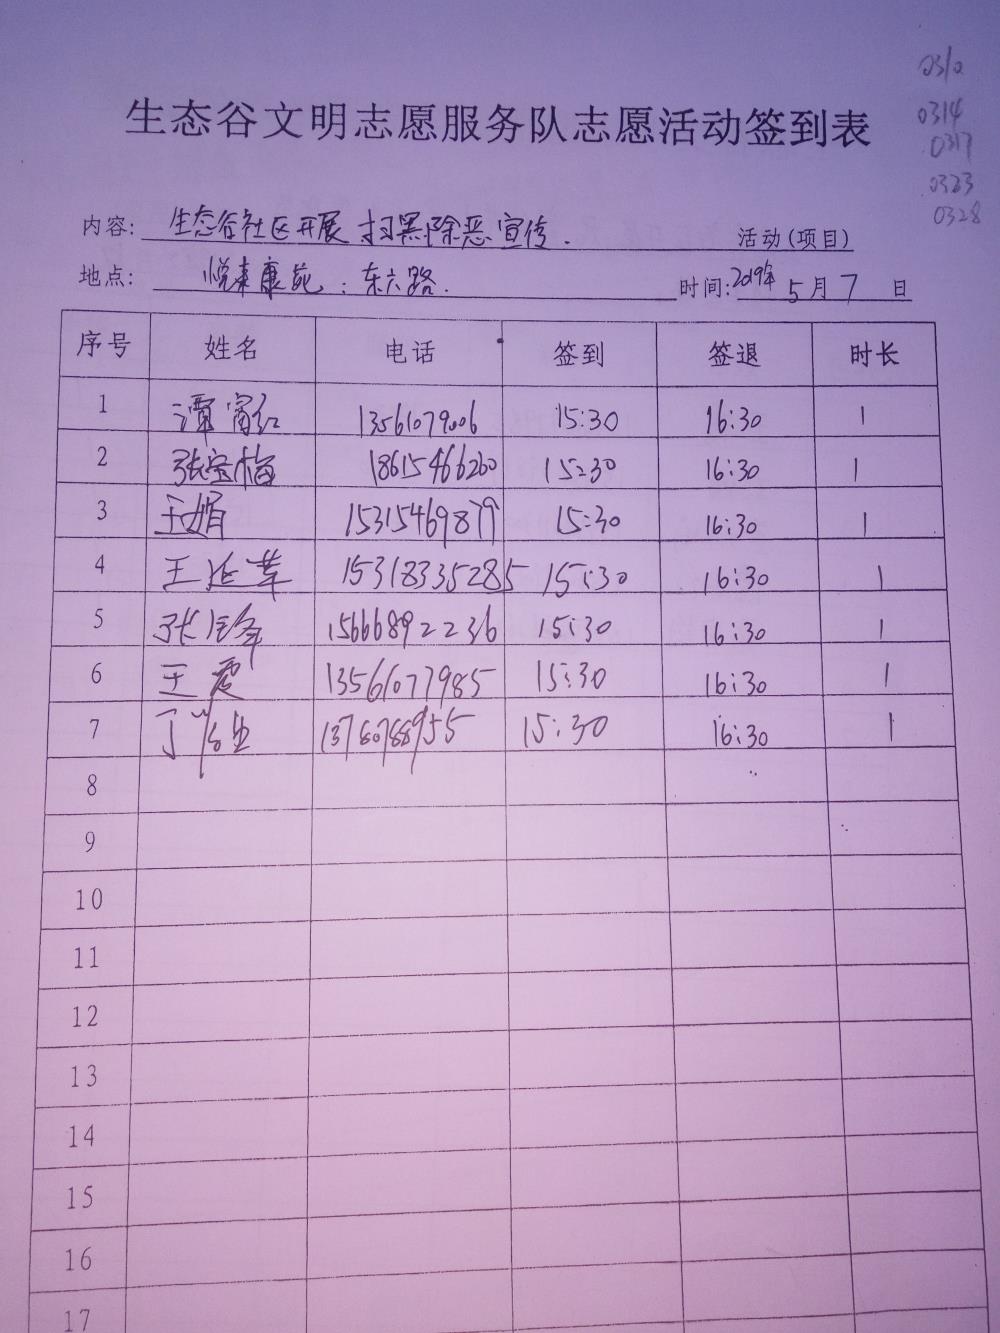 0310
0314
0317
0323
0328
生态谷文明志愿服务队志愿活动签到表
内容: 生态谷社区开展扫黑除恶宣传. 活动(项目)
地点: 悦来康苑:东六路. 时间:2019年5月7日
序号 姓名 电话 签到 签退 时长
1 谭富红 13561079006 15:30 16:30 1
2 张宝梅 18615466260 15:30 16:30 1
3 王娟 15315469879 15:30 16:30 1
4 王延苹 15318335285 15:30 16:30 1
5 张 15666892236 15:30 16:30 1
6 王震 13561077985 15:30 16:30 1
7 丁 15:30 16:30 1
8
9
10
11
12
13
14
15
16
17